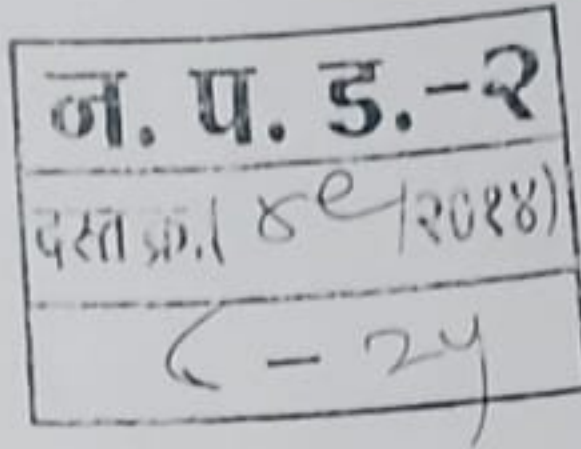 न. प. ड.-२
दस्त क्र.( ४९/२०१४)
८ - २५